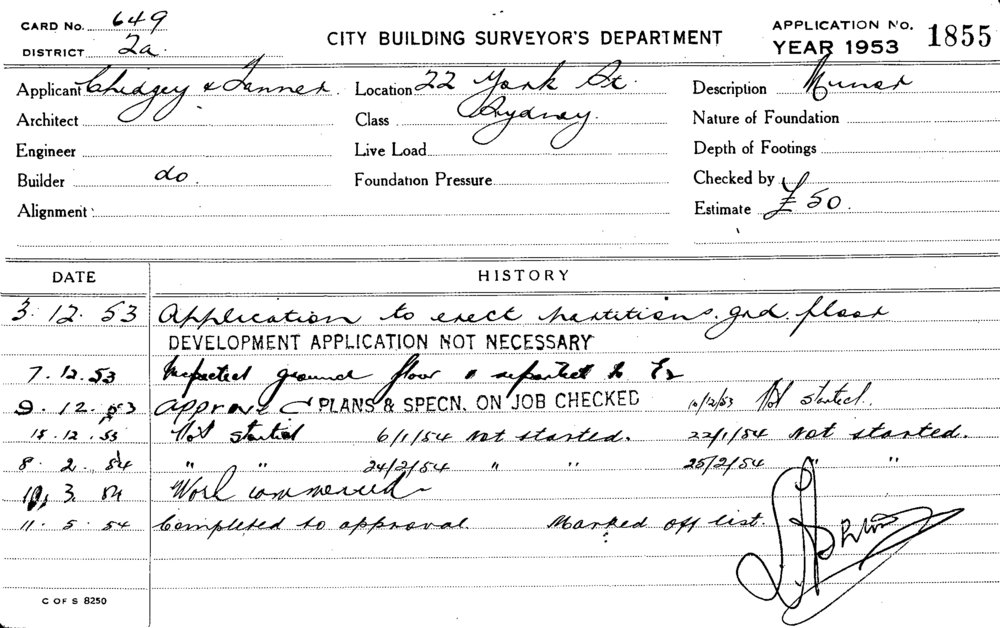 CARD No. 649
DISTRICT 2a.
CITY BUILDING SURVEYOR'S DEPARTMENT
APPLICATION No. 1855
YEAR 1953
Applicant Chidgey & Tanner. Location 22 York St. Description Minor
Architect Class Sydney. Nature of Foundation
Engineer Live Load Depth of Footings
Builder do. Foundation Pressure Checked by
Alignment Estimate £50.
DATE HISTORY
3. 12. 53 Application to erect partitions. grd. floor
DEVELOPMENT APPLICATION NOT NECESSARY
7. 12. 53 Inspected ground floor & reported to
9. 12. 53 Approve PLANS & SPECN. ON JOB CHECKED 10/12/53 Not started.
15. 12. 53 Not started 6/1/54 Not started. 22/1/54 Not started.
8. 2. 54 " " 24/2/54 " " 25/2/54 " "
10. 3. 54 Work commenced
11. 5. 54 Completed to approval. Marked off list.
C OF S 8250